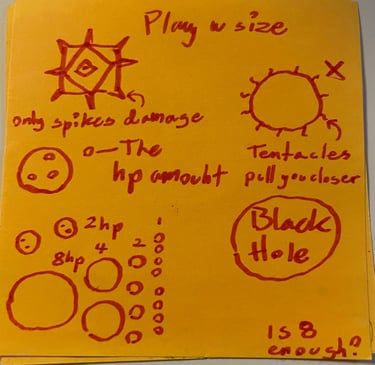 Play w size
only spikes damage
X
The
hp amount
Tentacles
pull you closer
2hp
8hp 4 2 1
Black
Hole
Is 8
enough?